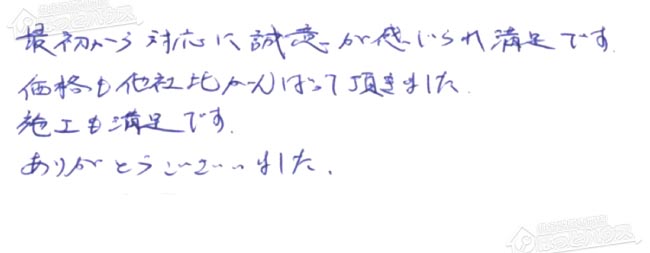 最初から対応に誠意が感じられ満足です.
価格も他社比がんばって頂きました.
施工も満足です.
ありがとうございました.